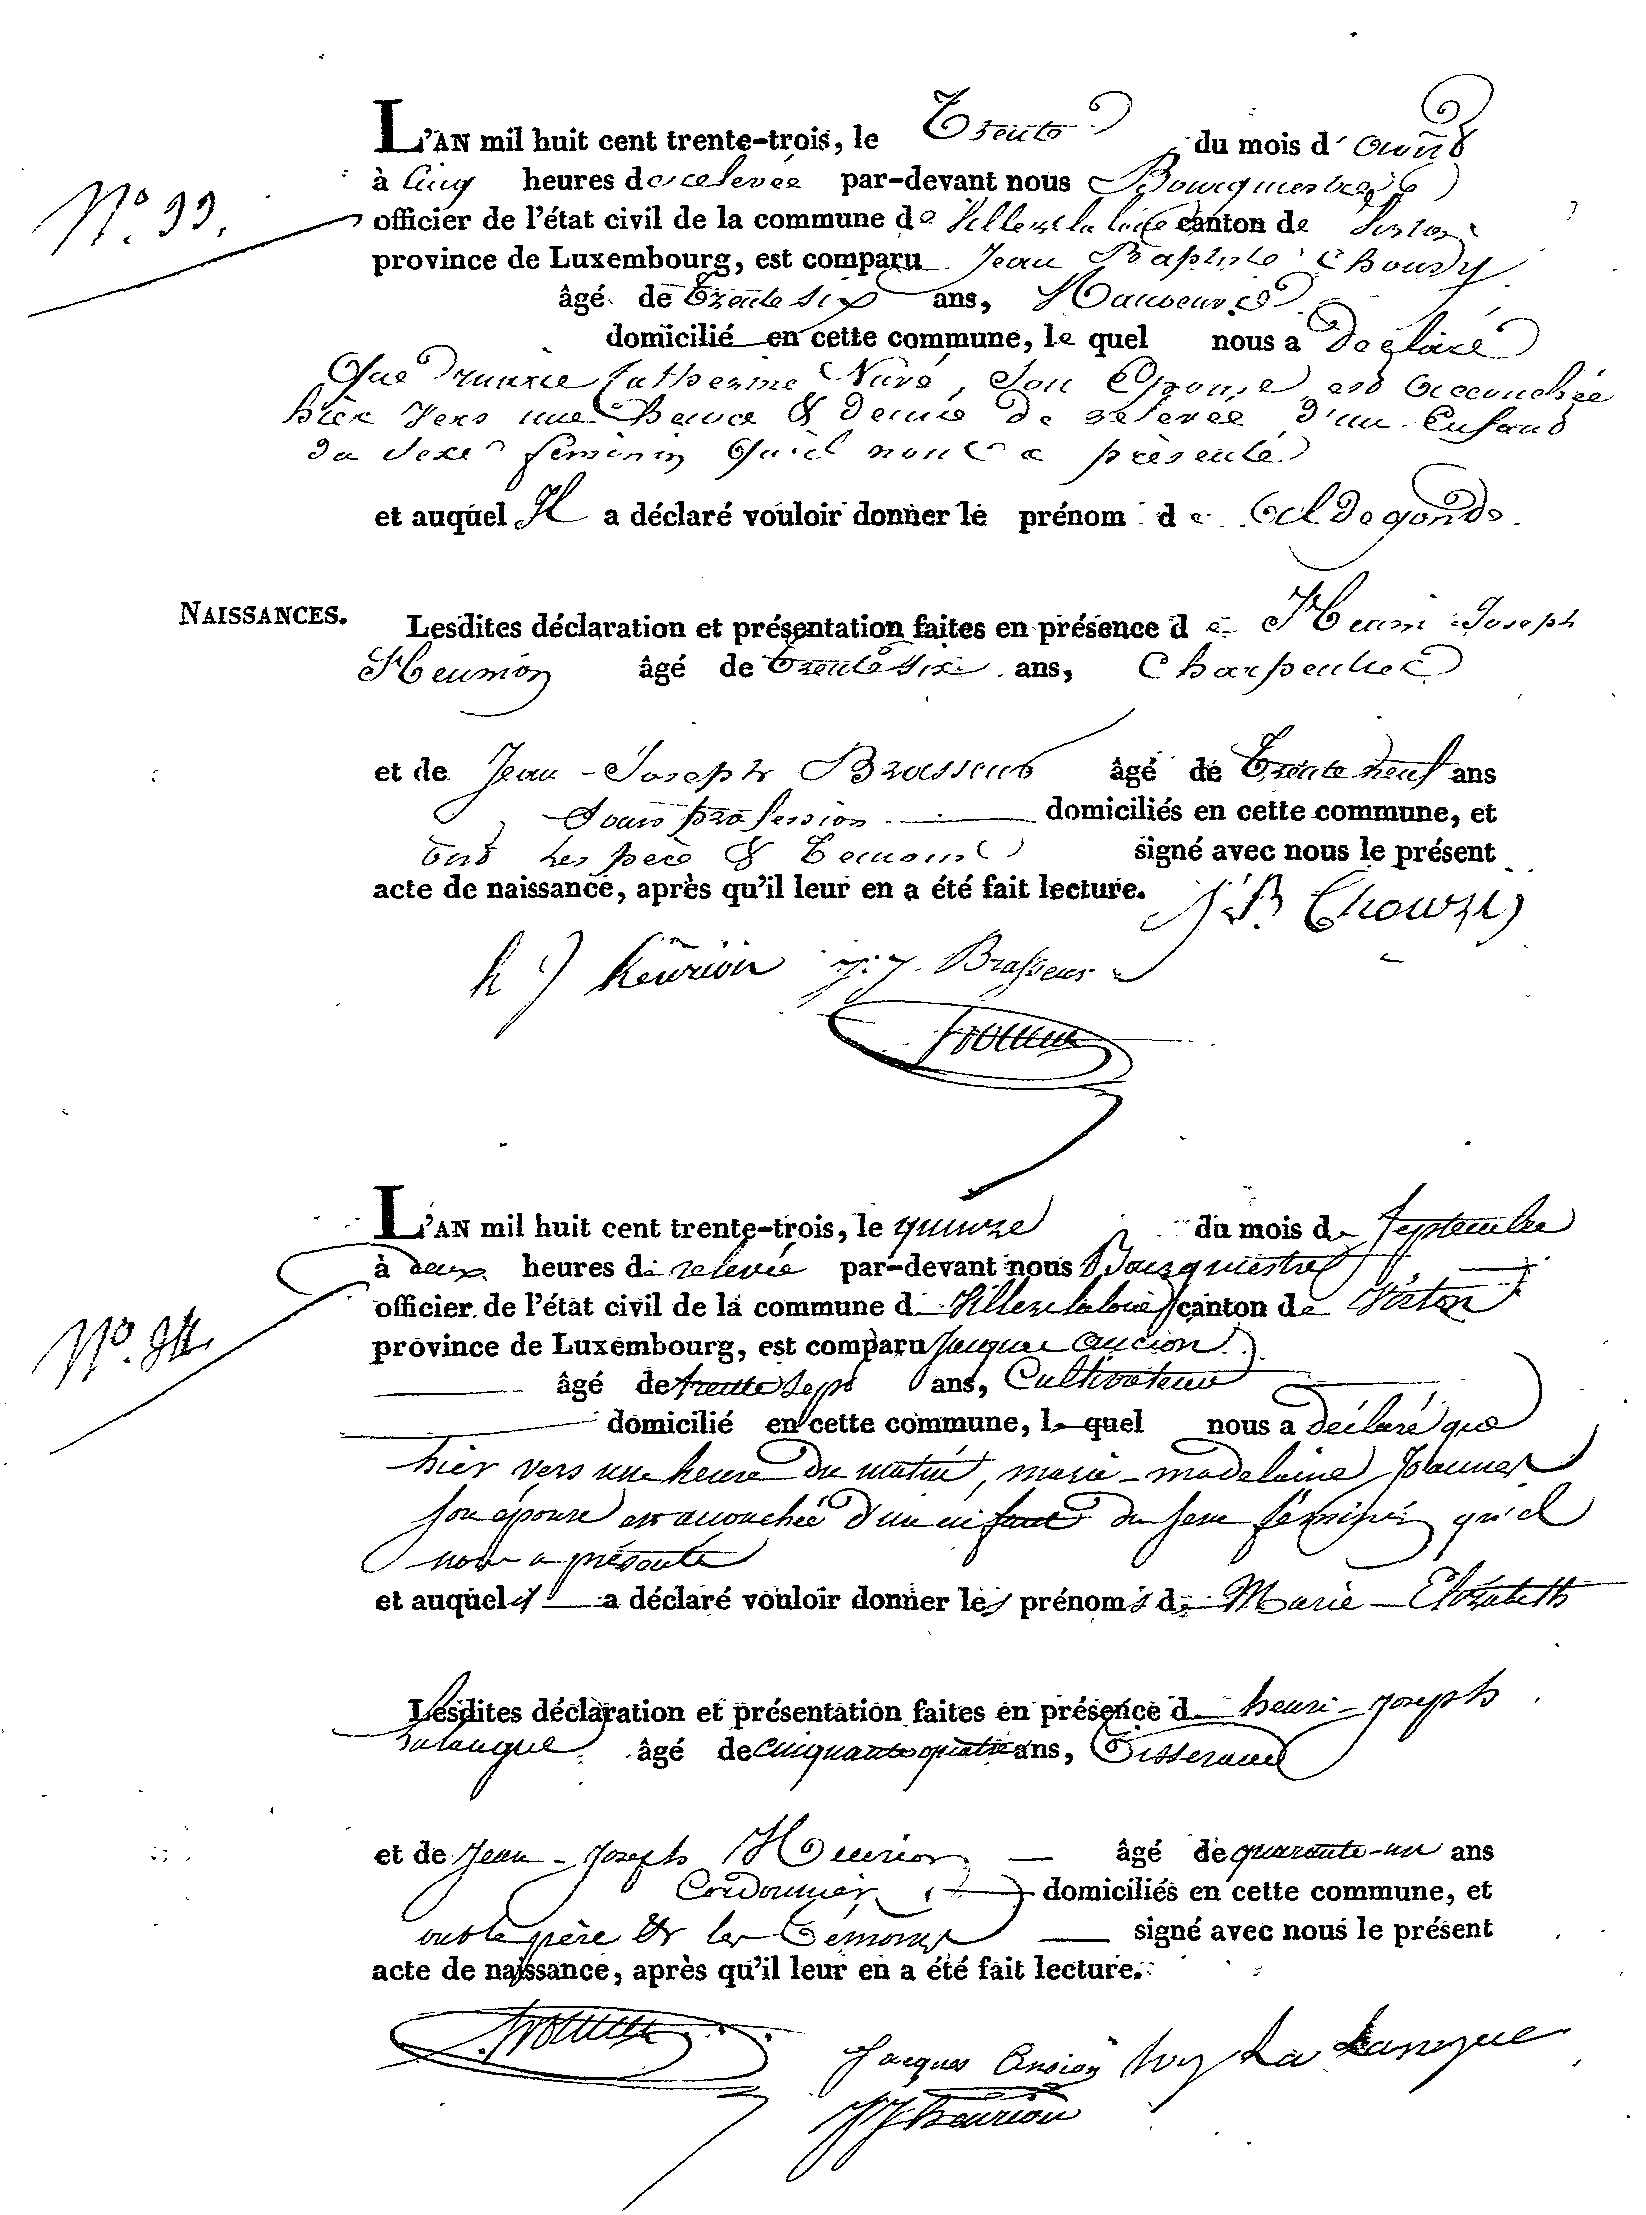 L'AN mil huit cent trente-trois, le Trente du mois d'août
N.° 33.
à Cinq heures de relevée par-devant nous Bourgmestre
officier de l'état civil de la commune de Villers la loue canton de Virton
province de Luxembourg, est comparu Jean Baptiste
âgé de trente six ans,
domicilié en cette commune, le quel nous a Déclaré
Que marie Catherine son Epouse est accouchée
hier vers une heure & demie de relevée d'un Enfant
du sexe féminin qu'il nous a présenté
et auquel Il a déclaré vouloir donner le prénom de Aldegonde.
NAISSANCES.
Lesdites déclaration et présentation faites en présence de Henri Joseph
Heurion âgé de trente six ans, Charpentier
et de Jean-Joseph Brasseur âgé de Trente neuf ans
Sans profession domiciliés en cette commune, et
ont les père & témoins signé avec nous le présent
acte de naissance, après qu'il leur en a été fait lecture.
h J heurion J. J. Brasseur
L'AN mil huit cent trente-trois, le quinze du mois de Septembre
à deux heures de relevée par-devant nous Bourgmestre
officier de l'état civil de la commune de Villers la loue canton de Virton
N.° 34.
province de Luxembourg, est comparu Jacques Ancion
âgé de trente sept ans, Cultivateur
domicilié en cette commune, le quel nous a déclaré que
hier vers une heure du matin, marie-madelaine Joannes
son épouse est accouchée d'un enfant du sexe féminin qu'il
nous a présenté
et auquel il a déclaré vouloir donner les prénoms de Marie-Elizabeth
Lesdites déclaration et présentation faites en présence de henri-Joseph
Lalangue âgé de cinquante quatre ans, Tisserand
et de Jean-Joseph Heurion âgé de quarante-un ans
Cordonnier domiciliés en cette commune, et
ont le père & les Témoins signé avec nous le présent
acte de naissance, après qu'il leur en a été fait lecture.
Jacques Ansion La Langue
JJ heurion